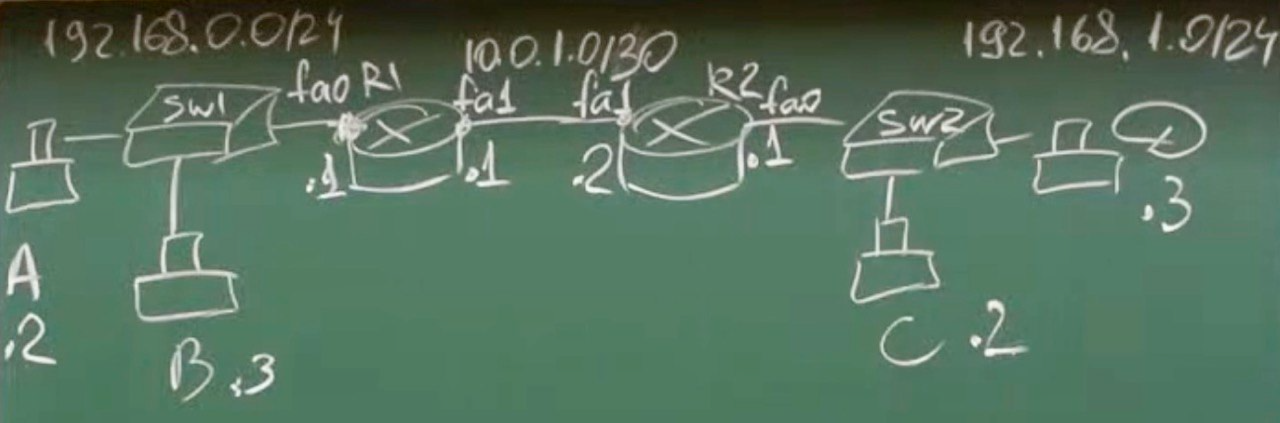 192.168.0.0/24
10.0.1.0/30
192.168.1.0/24
SW1
fa0
R1
fa1
fa1
R2
fa0
SW2
.1
.1
.2
.1
.3
A
.2
B .3
C .2